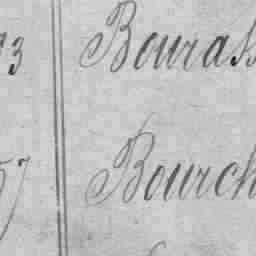 73 Bourass
57 Bourch